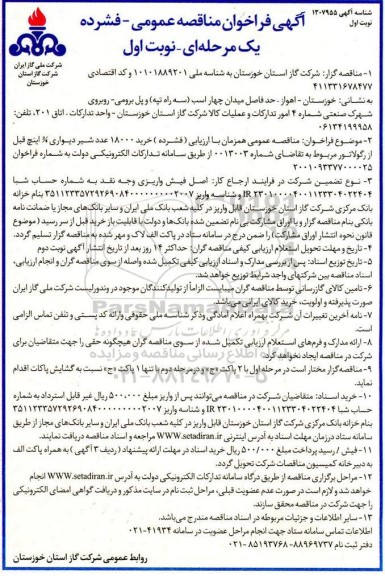 شناسه آگهی ۱۳۰۷۹۵۵
نوبت اول
آگهی فراخوان مناقصه عمومی - فشرده
یک مرحله‌ای - نوبت اول
شرکت ملی گاز ایران
شرکت گاز استان خوزستان
۱- مناقصه گزار: شرکت گاز استان خوزستان به شناسه ملی ۱۰۱۰۱۸۸۹۲۰۱ و کد اقتصادی
۴۱۱۳۳۱۶۷۸۴۷۷
به نشانی: خوزستان - اهواز - حد فاصل میدان چهار اسب (سه راه تپه) و پل برومی- روبروی
شهرک صنعتی شماره ۴ امور تدارکات و عملیات کالا شرکت گاز استان خوزستان - واحد تدارکات ، اتاق ۲۰۱، تلفن:
۰۶۱۳۴۱۹۹۹۵۸
۲- موضوع فراخوان: مناقصه عمومی همزمان با ارزیابی ( فشرده ) خرید ۱۸۰۰۰ عدد شیر دیواری ¾ اینچ قبل
از رگولاتور مربوط به تقاضای شماره ۰۰۱۳۰۰۳ از طریق سامانه تدارکات الکترونیکی دولت به شماره فراخوان
۲۰۰۱۰۹۳۳۷۷۰۰۰۰۲۵
۳- نوع تضمین شرکت در فرایند ارجاع کار: اصل فیش واریزی وجه نقد به شماره حساب شبا
بانک مرکزی شرکت گاز استان خوزستان قابل واریز در کلیه شعب بانک ملی ایران و سایر بانک‌های مجاز یا ضمانت نامه
۴- تاریخ و مهلت تحویل استعلام ارزیابی کیفی مناقصه گران: حداکثر ۱۴ روز بعد از تاریخ انتشار آگهی نوبت دوم
۵- تاریخ توزیع اسناد: پس از بررسی مدارک و اسناد ارزیابی کیفی تکمیل شده واصله از سوی مناقصه گران و انجام ارزیابی،
اسناد مناقصه بین شرکتهای واجد شرایط توزیع خواهد شد.
۶- تامین کالای گازرسانی توسط مناقصه گران میبایست الزاماً از تولیدکنندگان موجود در وندورلیست شرکت ملی گاز ایران
صورت پذیرفته و اولویت، خرید کالای ایرانی می‌باشد.
۸- ارائه مدارک و فرم‌های استعلام ارزیابی تکمیل شده از سوی مناقصه گران هیچگونه حقی را جهت متقاضیان برای
شرکت در مناقصه ایجاد نخواهد کرد.
۹- مناقصه گزار مختار است در مرحله اول با ۲ پاکت «ج» و در مرحله دوم با تنها ۱ پاکت «ج» نسبت به گشایش پاکات اقدام
نماید.
۱۰- خرید اسناد: متقاضیان شرکت در مناقصه می‌توانند پس از واریز مبلغ ۵۰۰,۰۰۰ ریال غیر قابل استرداد به شماره
بنام خزانه بانک مرکزی شرکت گاز استان خوزستان قابل واریز در کلیه شعب بانک ملی ایران و سایر بانک‌های مجاز از طریق
سامانه ستاد درزمان مهلت اسناد به آدرس اینترنتی WWW.setadiran.ir مراجعه و اسناد مناقصه دریافت نمایند.
۱۱- فیش / رسید پرداخت مبلغ ۵۰۰/۰۰۰ ریال خرید اسناد در مهلت ارائه پیشنهاد (ردیف ۳ آگهی) به همراه پاکت الف
به دبیرخانه کمیسیون مناقصات شرکت تحویل گردد.
۱۲- مراحل برگزاری مناقصه از طریق درگاه سامانه تدارکات الکترونیکی دولت به آدرس WWW.setadiran.ir انجام
خواهد شد و لازم است در صورت عدم عضویت قبلی، مراحل ثبت نام در سایت مذکور و دریافت گواهی امضای الکترونیکی
را جهت شرکت در مناقصه محقق سازند.
۱۳- سایر اطلاعات و جزئیات مربوطه در اسناد مناقصه مندرج می‌باشد.
اطلاعات تماس سامانه ستاد جهت انجام مراحل عضویت در سامانه ۴۱۹۳۴-۰۲۱
دفتر ثبت نام ۸۸۹۶۹۷۳۷-۸۵۱۹۳۷۶۸-۰۲۱
روابط عمومی شرکت گاز استان خوزستان